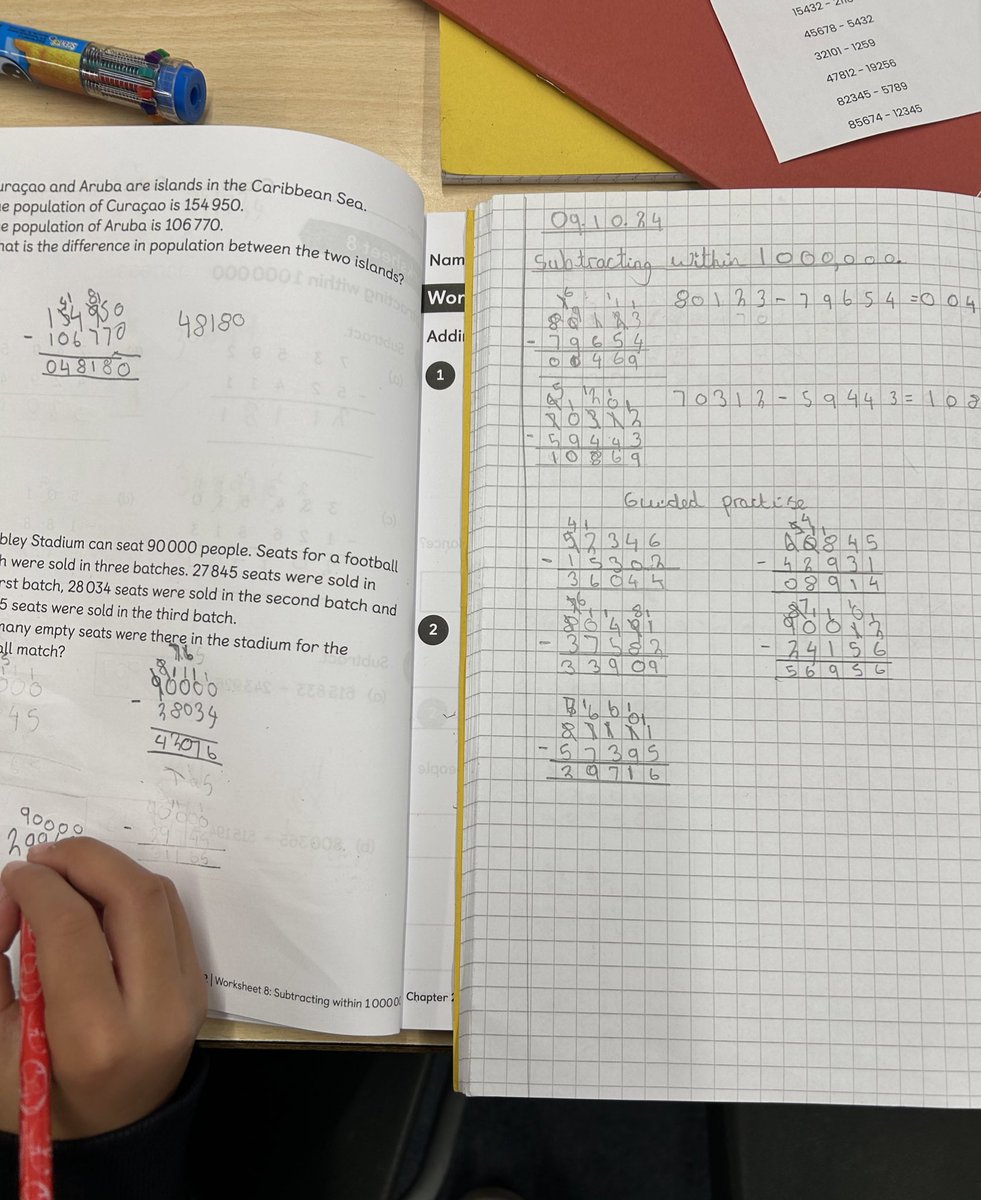 15432 -
45678 - 5432
32101 - 1259
47812 - 19256
82345 - 5789
85674 - 12345
uraçao and Aruba are islands in the Caribbean Sea.
e population of Curaçao is 154 950.
e population of Aruba is 106 770.
hat is the difference in population between the two islands?
154950
- 106770
048180
48180
bley Stadium can seat 90 000 people. Seats for a football
h were sold in three batches. 27 845 seats were sold in
rst batch, 28 034 seats were sold in the second batch and
5 seats were sold in the third batch.
many empty seats were there in the stadium for the
all match?
90000
- 28034
90000
| Worksheet 8: Subtracting within 1 000 00
Nam
Wor
Addi
1
2
Chapter 2
09.10.24
Subtracting within 1000,000.
80123 - 79654 = 004
80123
- 79654
00469
70312 - 59443 = 108
70312
- 59443
10869
Guided practise
52346
- 15302
36044
- 42931
08914
- 37582
33909
90012
- 24156
56956
- 57395
29716